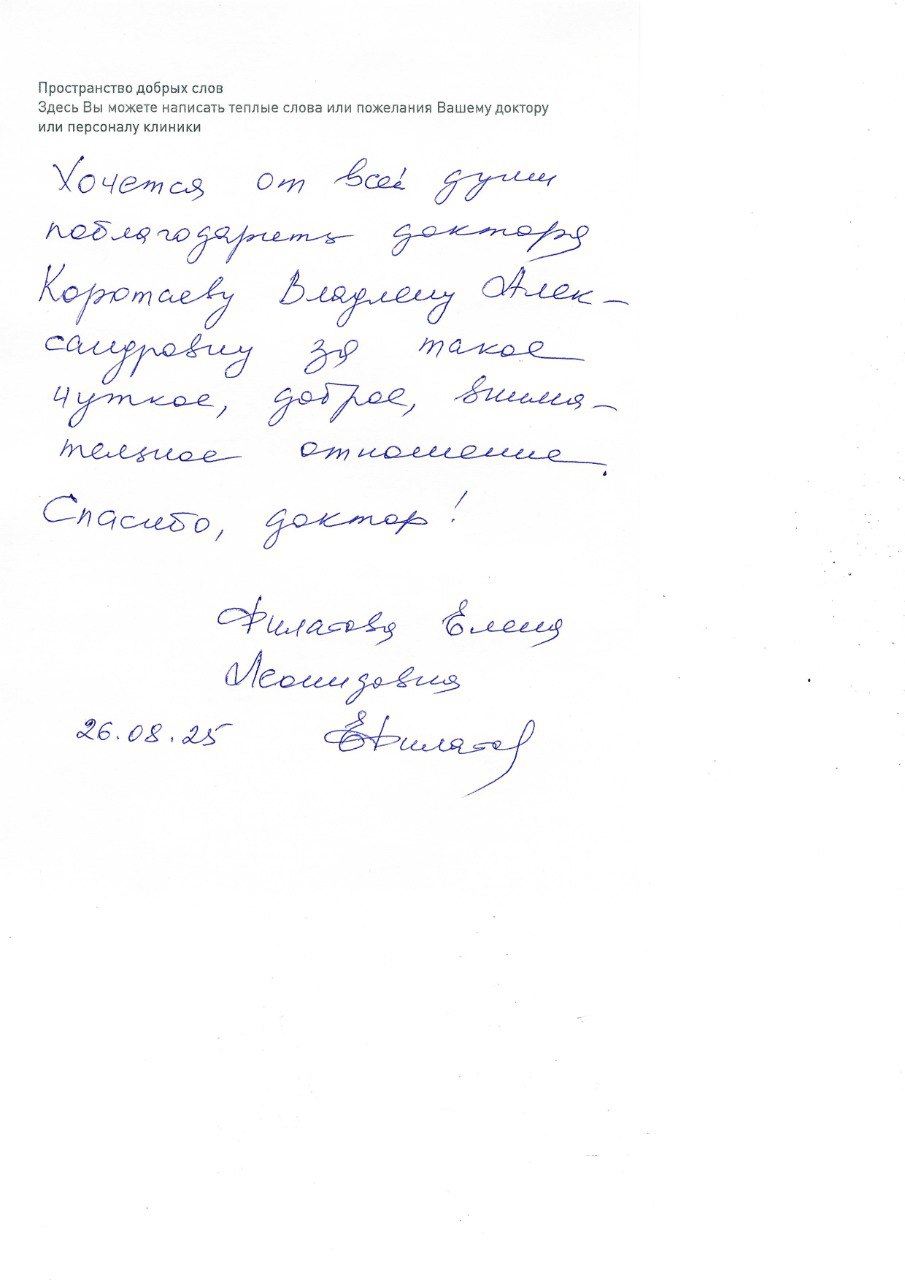 Пространство добрых слов
Здесь Вы можете написать теплые слова или пожелания Вашему доктору
или персоналу клиники
Хочется от всей души
поблагодарить доктора
Коротаеву Владлену Алек-
сандровну за такое
чуткое, доброе, внима-
тельное отношение.
Спасибо, доктор!
Филатова Елена
Леонидовна
26.08.25 ЕФилатов